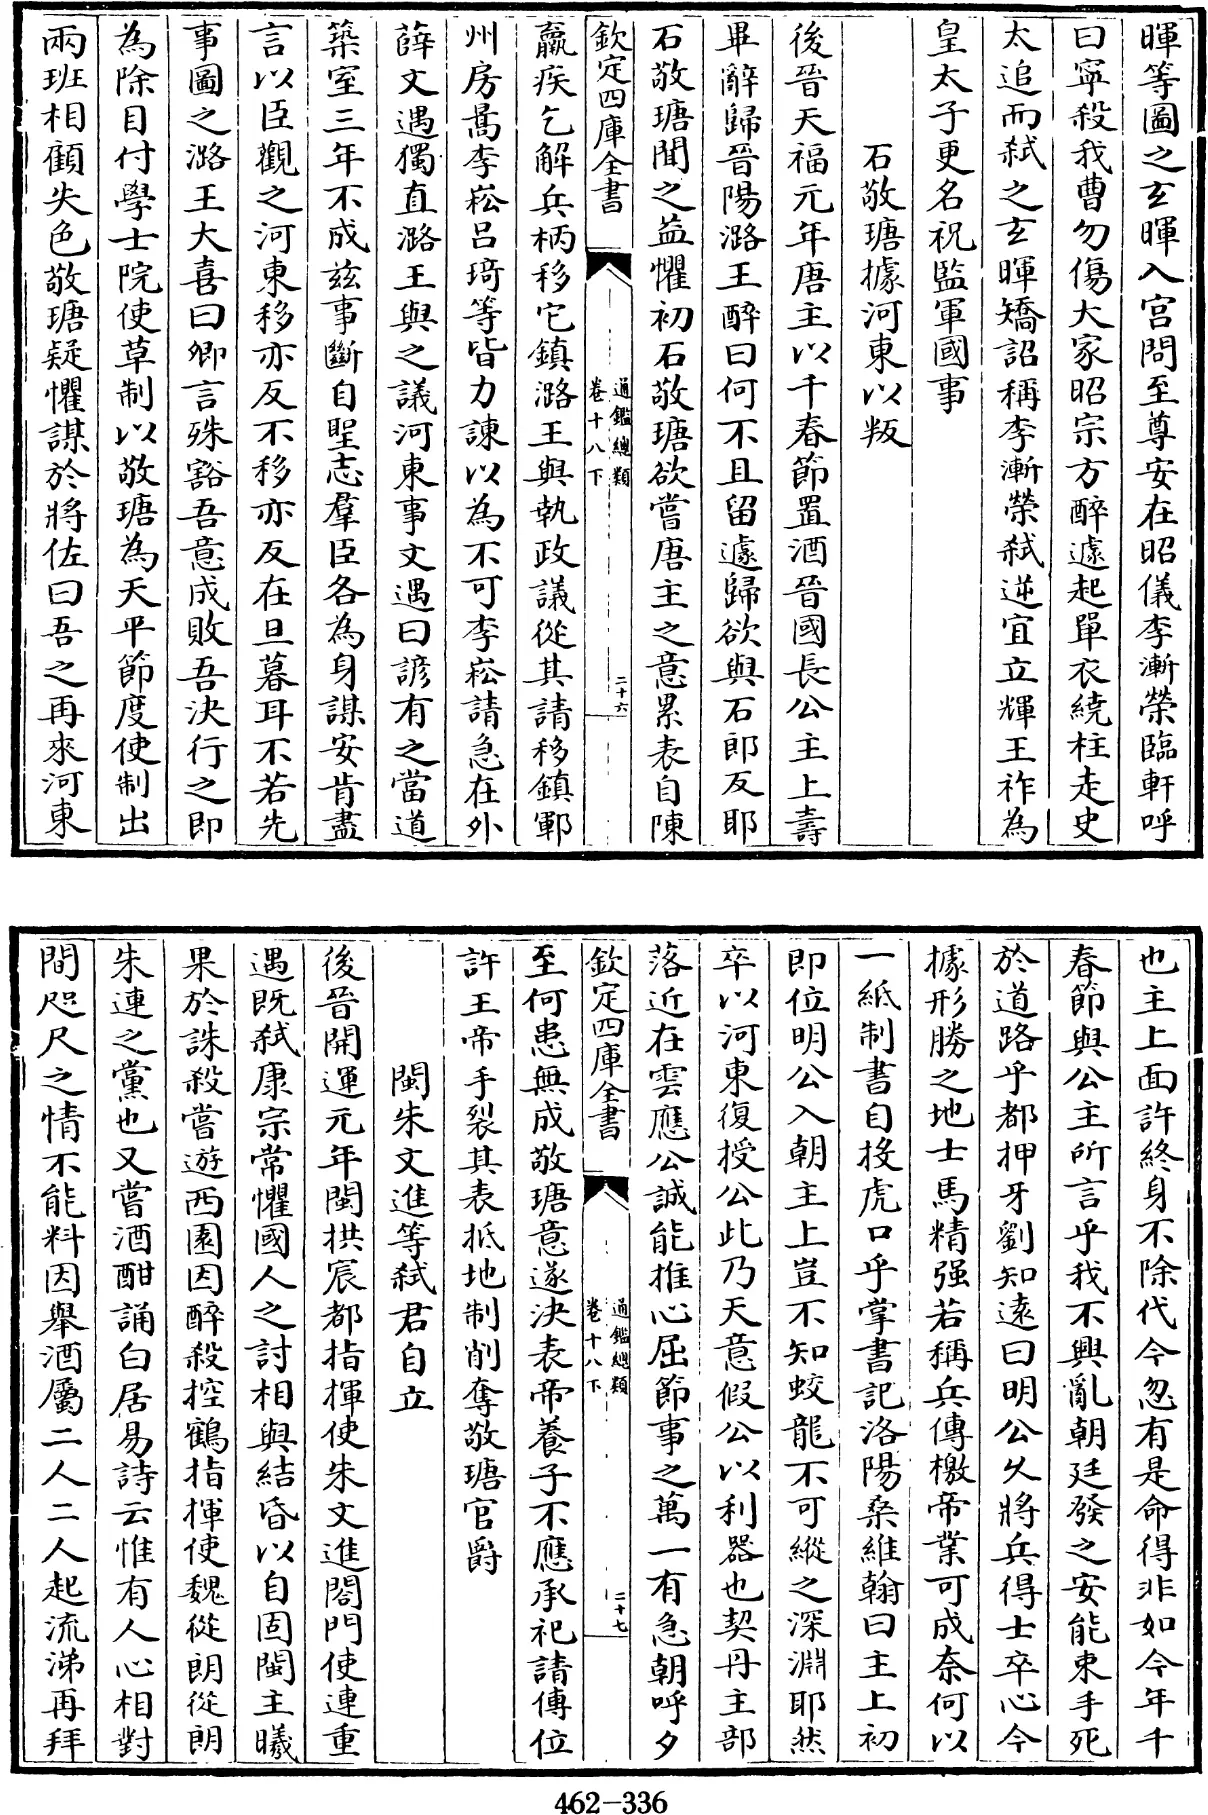 暉等圖之玄暉入宮問至尊安在昭儀李漸榮臨軒呼
曰寜殺我曹勿傷大家昭宗方醉遽起單衣繞柱走史
太追而弑之玄暉矯詔稱李漸榮弑逆宜立輝王祚為
皇太子更名祝監軍國事
石敬瑭據河東以叛
後晉天福元年唐主以千春節置酒晉國長公主上壽
畢辭歸晉陽潞王醉曰何不且留遽歸欲與石郎反耶
石敬瑭聞之益懼初石敬瑭欲嘗唐主之意累表自陳
欽定四庫全書
通鑑總類
卷十八下
二十六
羸疾乞解兵柄移它鎮潞王與執政議從其請移鎮鄆
州房暠李崧吕琦等皆力諫以為不可李崧請急在外
薛文遇獨直潞王與之議河東事文遇曰諺有之當道
築室三年不成兹事斷自聖志羣臣各為身謀安肯盡
言以臣觀之河東移亦反不移亦反在旦暮耳不若先
事圖之潞王大喜曰卿言殊豁吾意成敗吾決行之即
為除目付學士院使草制以敬瑭為天平節度使制出
兩班相顧失色敬瑭疑懼謀於將佐曰吾之再來河東
也主上面許終身不除代今忽有是命得非如今年千
春節與公主所言乎我不興亂朝廷發之安能束手死
於道路乎都押牙劉知遠曰明公久將兵得士卒心今
據形勝之地士馬精强若稱兵傳檄帝業可成奈何以
一紙制書自投虎口乎掌書記洛陽桑維翰曰主上初
即位明公入朝主上豈不知蛟龍不可縱之深淵耶然
卒以河東復授公此乃天意假公以利器也契丹主部
落近在雲應公誠能推心屈節事之萬一有急朝呼夕
欽定四庫全書
通鑑總類
卷十八下
二十七
至何患無成敬瑭意遂決表帝養子不應承祀請傳位
許王帝手裂其表抵地制削奪敬瑭官爵
閩朱文進等弑君自立
後晉開運元年閩拱宸都指揮使朱文進閤門使連重
遇既弑康宗常懼國人之討相與結昏以自固閩主曦
果於誅殺嘗遊西園因醉殺控鶴指揮使魏從朗從朗
朱連之黨也又嘗酒酣誦白居易詩云惟有人心相對
間咫尺之情不能料因舉酒屬二人二人起流涕再拜
462-336